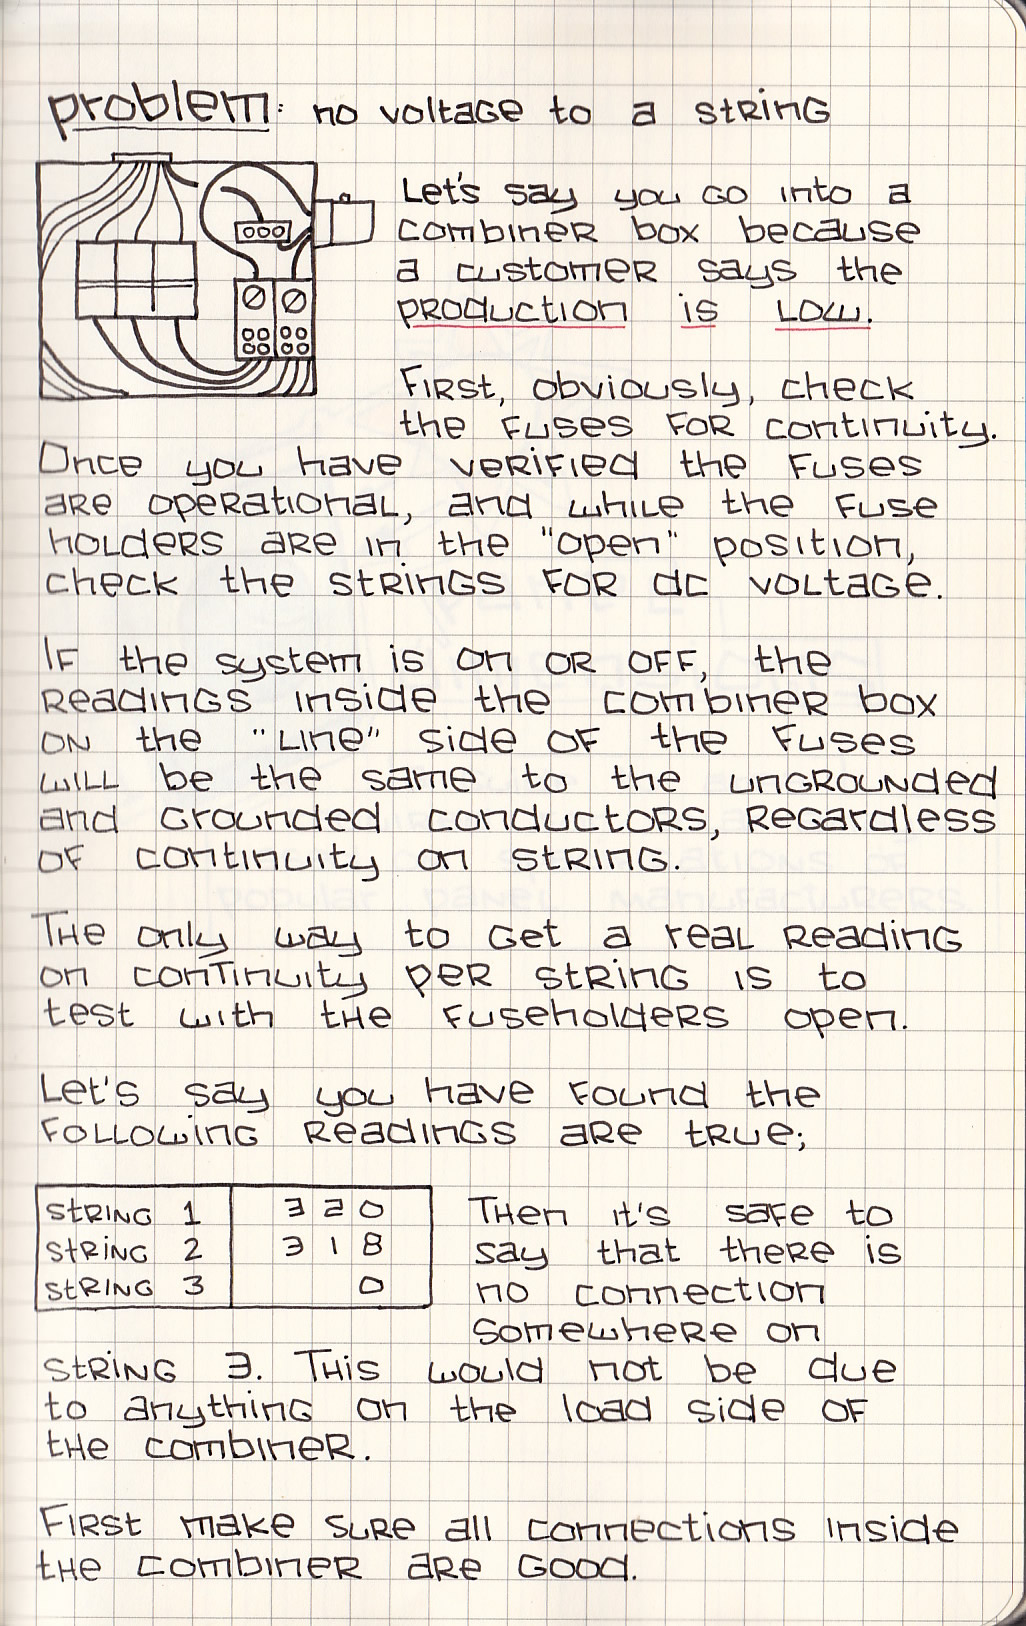 problem: no voltage to a string
Let's say you go into a
combiner box because
a customer says the
production is low.
First, obviously, check
the fuses for continuity.
Once you have verified the fuses
are operational, and while the fuse
holders are in the "open" position,
check the strings for dc voltage.
If the system is on or off, the
readings inside the combiner box
on the "Line" side of the fuses
will be the same to the ungrounded
and grounded conductors, regardless
of continuity on string.
The only way to get a real reading
on continuity per string is to
test with the fuseholders open.
Let's say you have found the
following readings are true;
string 1 320
string 2 318
string 3 0
Then it's safe to
say that there is
no connection
somewhere on
string 3. This would not be due
to anything on the load side of
the combiner.
First make sure all connections inside
the combiner are good.